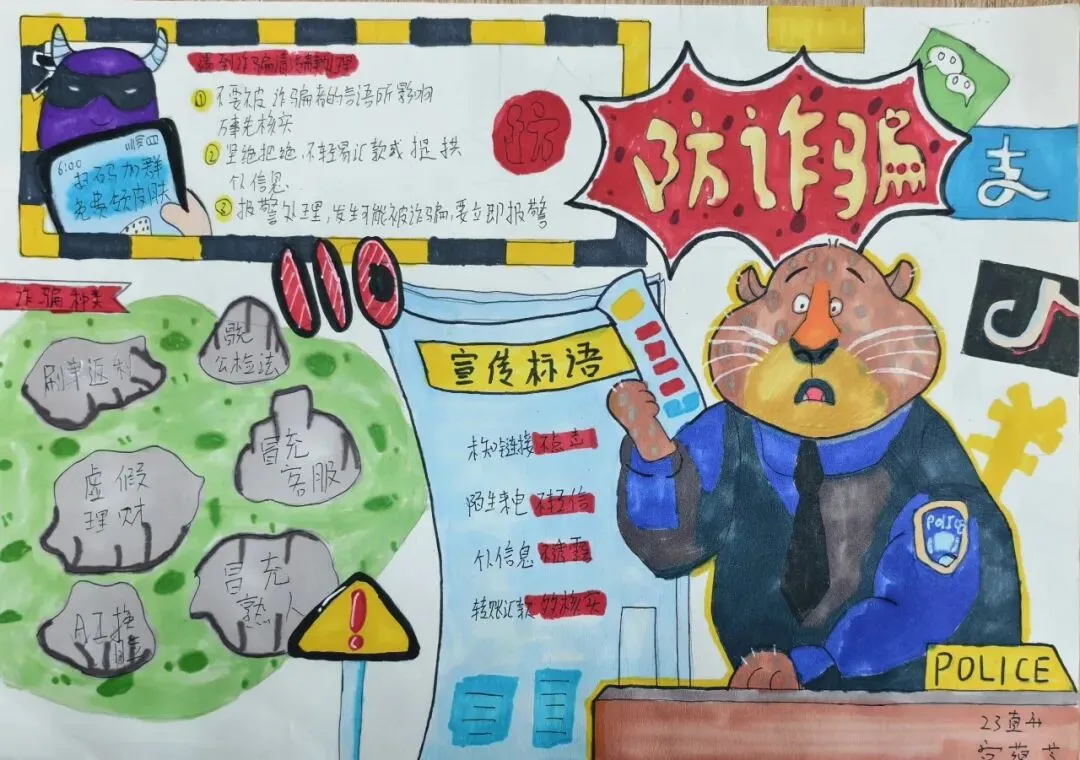 遇到诈骗请这样处理
① 不要被诈骗者的言语所影响
万事先核实
② 坚绝拒绝,不轻易汇款或提拱
个人信息
③ 报警处理,发生可能被诈骗,要立即报警
防
6:00
扫码加群
免费领皮肤
防诈骗
支
110
诈骗种类
刷单返利
公检法
虚假
理财
冒充
客服
冒充
熟人
AI换
脸
宣传标语
未知链接不点击
陌生来电不轻信
个人信息不透露
转账汇款多核实
POLICE
POLICE
23直升